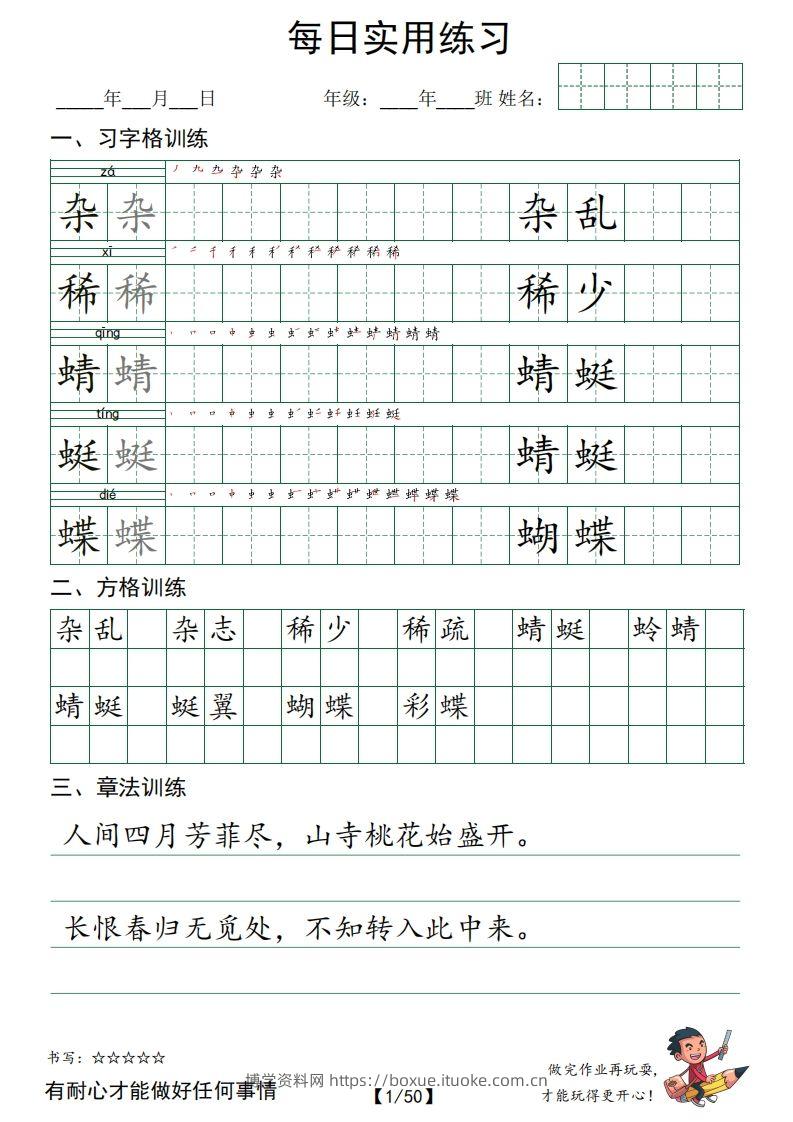 每日实用练习
_____年___月___日 年级：____年____班 姓名：
一、习字格训练
zá
杂 杂 杂 乱
xī
稀 稀 稀 少
qīng
蜻 蜻 蜻 蜓
tíng
蜓 蜓 蜻 蜓
dié
蝶 蝶 蝴 蝶
二、方格训练
杂 乱 杂 志 稀 少 稀 疏 蜻 蜓 蛉 蜻
蜻 蜓 蜓 翼 蝴 蝶 彩 蝶
三、章法训练
人间四月芳菲尽，山寺桃花始盛开。
长恨春归无觅处，不知转入此中来。
书写：☆☆☆☆☆
有耐心才能做好任何事情
博学资料网 https://boxue.ituoke.com.cn
【1/50】
做完作业再玩耍，
才能玩得更开心！